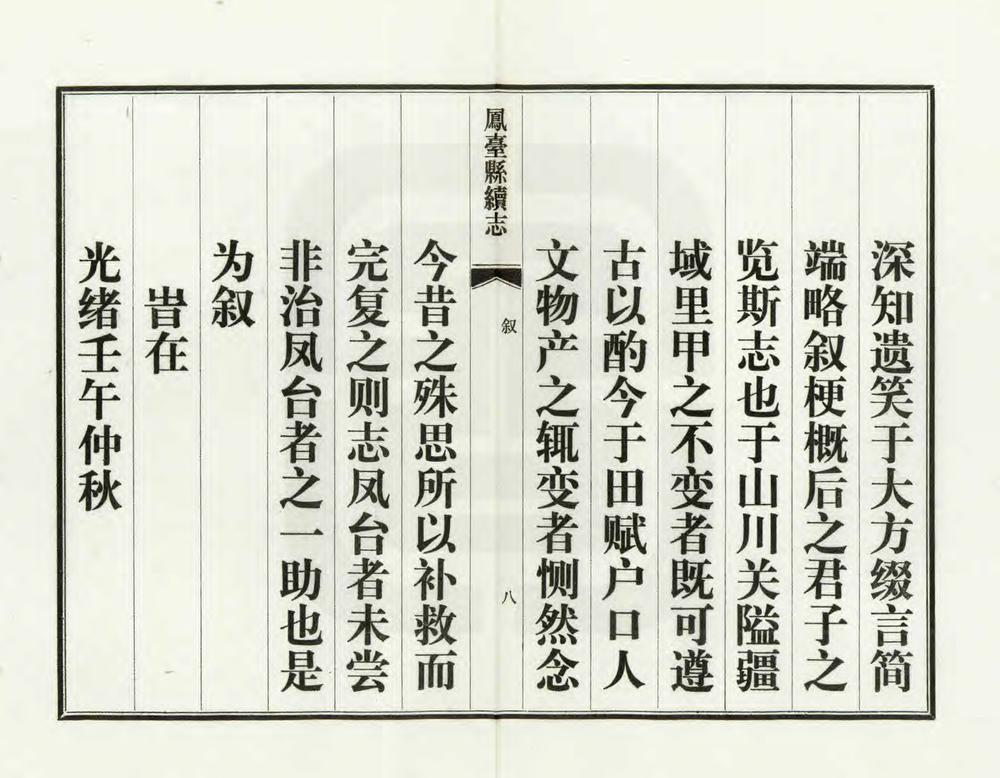 深知遗笑于大方缀言简
端略叙梗概后之君子之
览斯志也于山川关隘疆
域里甲之不变者既可遵
古以酌今于田赋户口人
文物产之辄变者恻然念
鳳臺縣續志
叙
八
今昔之殊思所以补救而
完复之则志凤台者未尝
非治凤台者之一助也是
为叙
旹在
光绪壬午仲秋